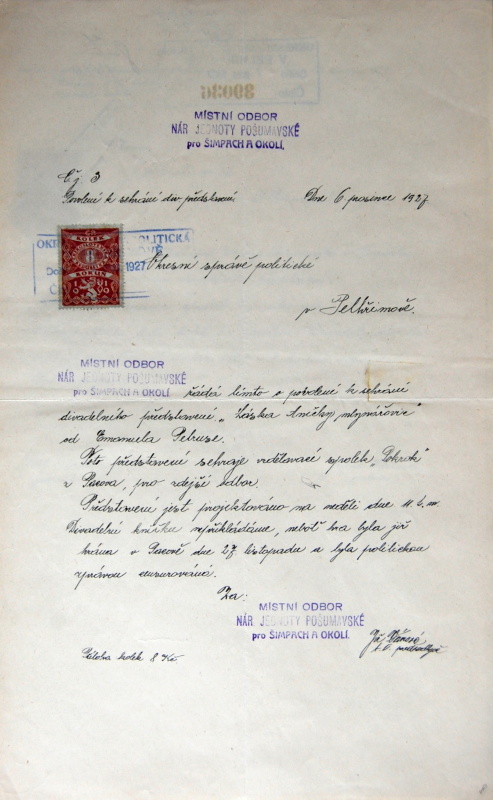 MÍSTNÍ ODBOR
NÁR JEDNOTY POŠUMAVSKÉ
pro ŠIMPACH A OKOLÍ.
Č.j. 3
Povolení k sehrání div. představení. Dne 6 prosince 1927.
KOLEK
8
KORUN
1927
Okresní správě politické
v Pelhřimově.
MÍSTNÍ ODBOR
NÁR JEDNOTY POŠUMAVSKÉ
pro ŠIMPACH A OKOLÍ. žádá tímto o povolení k sehrání
divadelního představení „Láska Aničky mlynářovic"
od Emanuela Petruse.
Toto představení sehraje vzdělávací spolek „Pokrok"
z Pacova, pro zdejší odbor.
Představení jest projektováno na neděli dne 11. t. m.
Divadelní knížku nepřikládáme, neboť hra byla již
hrána v Pacově dne 27 listopadu a byla politickou
správou censurována.
Za:
MÍSTNÍ ODBOR
NÁR JEDNOTY POŠUMAVSKÉ
pro ŠIMPACH A OKOLÍ.
Příloha kolek 8 Kč
t. č. předseda